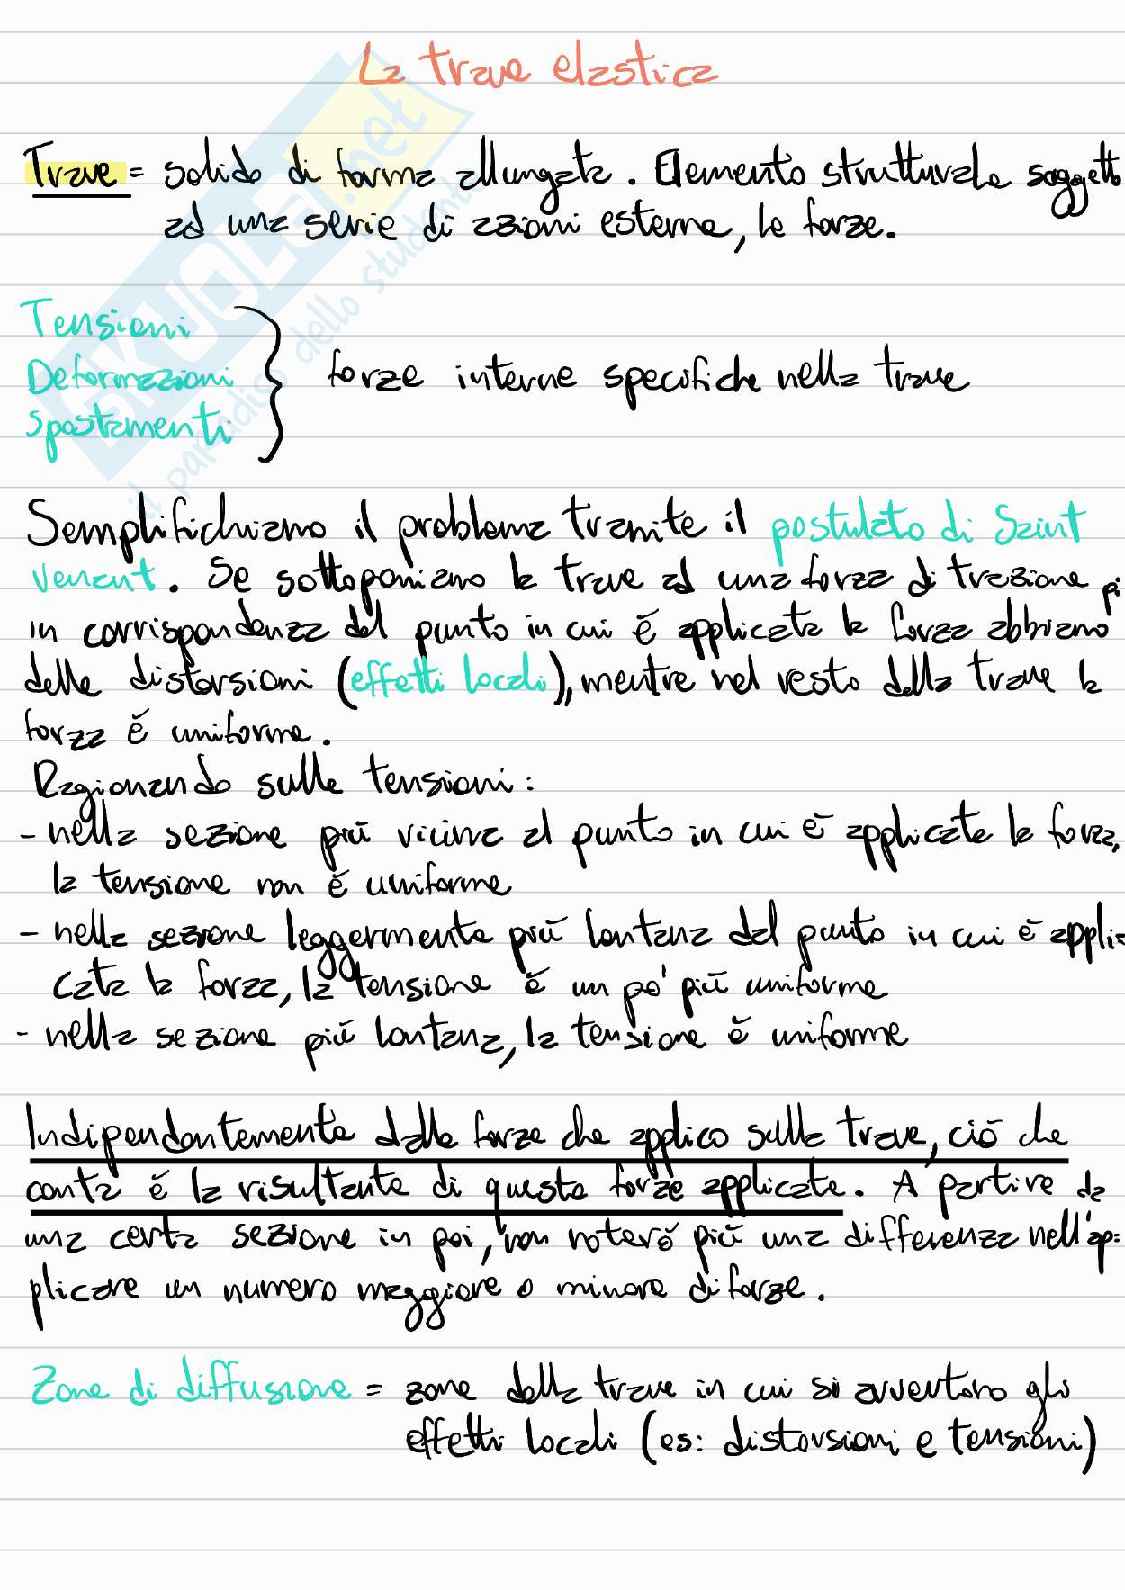 La trave elastica
Trave = solido di forma allungata. Elemento strutturale soggetto
ad una serie di azioni esterne, le forze.
Tensioni
Deformazioni
Spostamenti
forze interne specifiche nella trave
Semplifichiamo il problema tramite il postulato di Saint
Venant. Se sottoponiamo la trave ad una forza di trazione pi
in corrispondenza del punto in cui è applicata la forza abbiamo
delle distorsioni (effetti locali), mentre nel resto della trave la
forza è uniforme.
Ragionando sulle tensioni:
- nella sezione più vicina al punto in cui è applicata la forza,
la tensione non è uniforme
- nella sezione leggermente più lontana dal punto in cui è appli-
cata la forza, la tensione è un po' più uniforme
- nella sezione più lontana, la tensione è uniforme
Indipendentemente dalle forze che applico sulla trave, ciò che
conta è la risultante di queste forze applicate. A partire da
una certa sezione in poi, non noterò più una differenza nell'ap=
plicare un numero maggiore o minore di forze.
Zone di diffusione = zone della trave in cui si avventano gli
effetti locali (es: distorsioni e tensioni)
SKUOLA.net
il paradiso dello studente